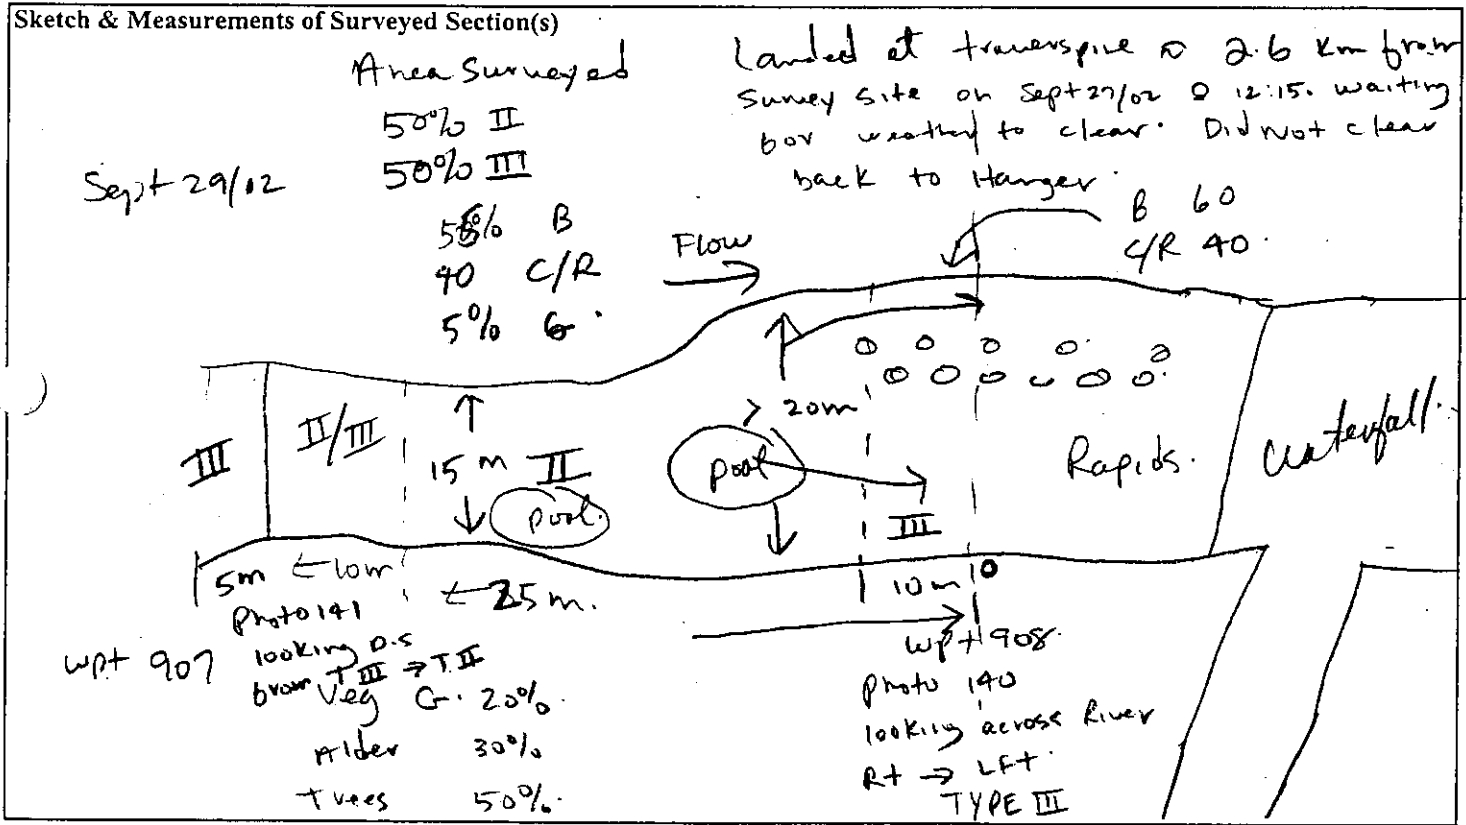 Sketch & Measurements of Surveyed Section(s)
Area Surveyed
50% II
50% III
Sept 29/02
55% B
40 C/R
5% G.
Landed at traverspine @ 2.6 km from
survey site on Sept 27/02 @ 12:15. waiting
for weather to clear. Did not clear
back to Hanger.
B 60
C/R 40.
Flow
III
II/III
15 m II
pool.
> 20m
pool
III
Rapids.
Waterfall.
5m ← 10m
← 25 m.
10 m
photo 141
looking D.S
from T III → T. II
wpt 907
Veg G. 20%.
Alder 30%
Trees 50%.
wpt 908.
photo 140
looking across River
Rt → LFt.
TYPE III